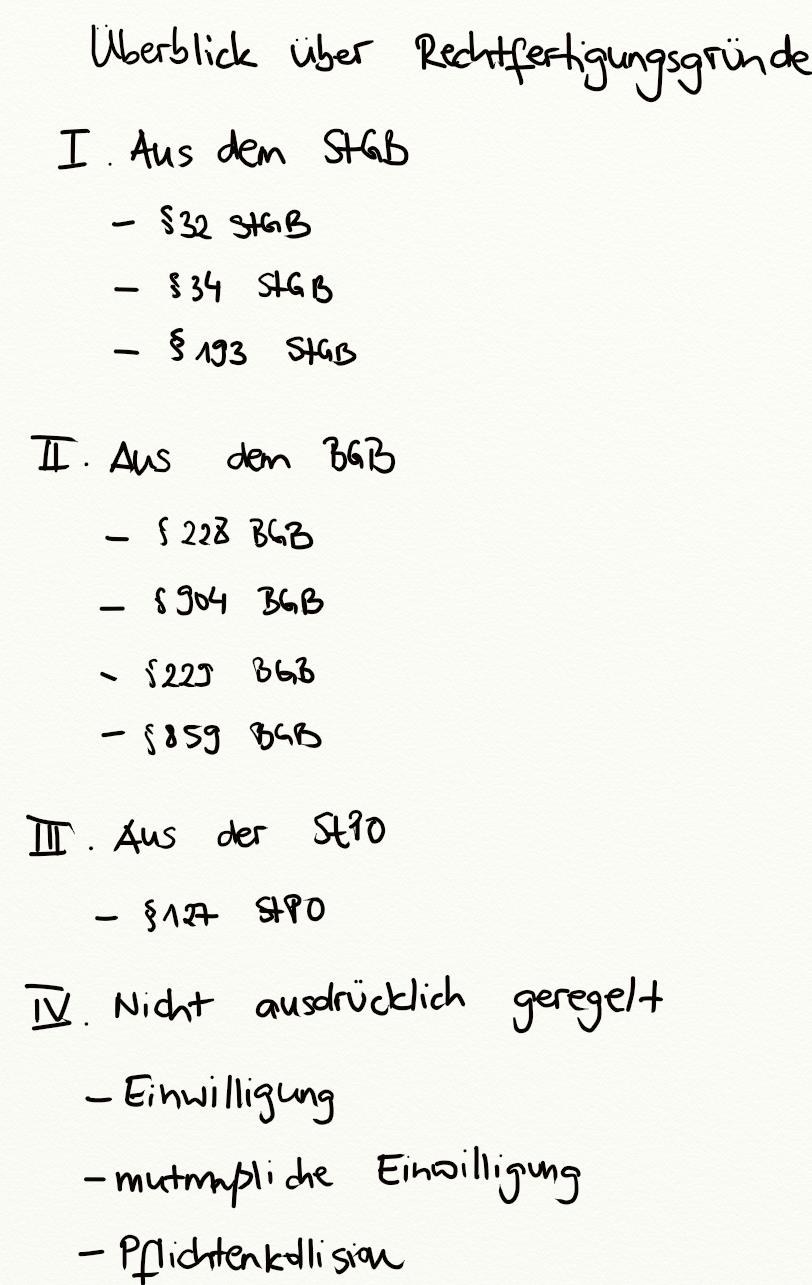 Überblick über Rechtfertigungsgründe
I. Aus dem StGB
- §32 StGB
- §34 StGB
- §193 StGB
II. Aus dem BGB
- §228 BGB
- §904 BGB
- §229 BGB
- §859 BGB
III. Aus der StPO
- §127 StPO
IV. Nicht ausdrücklich geregelt
- Einwilligung
- mutmaßliche Einwilligung
- Pflichtenkollision